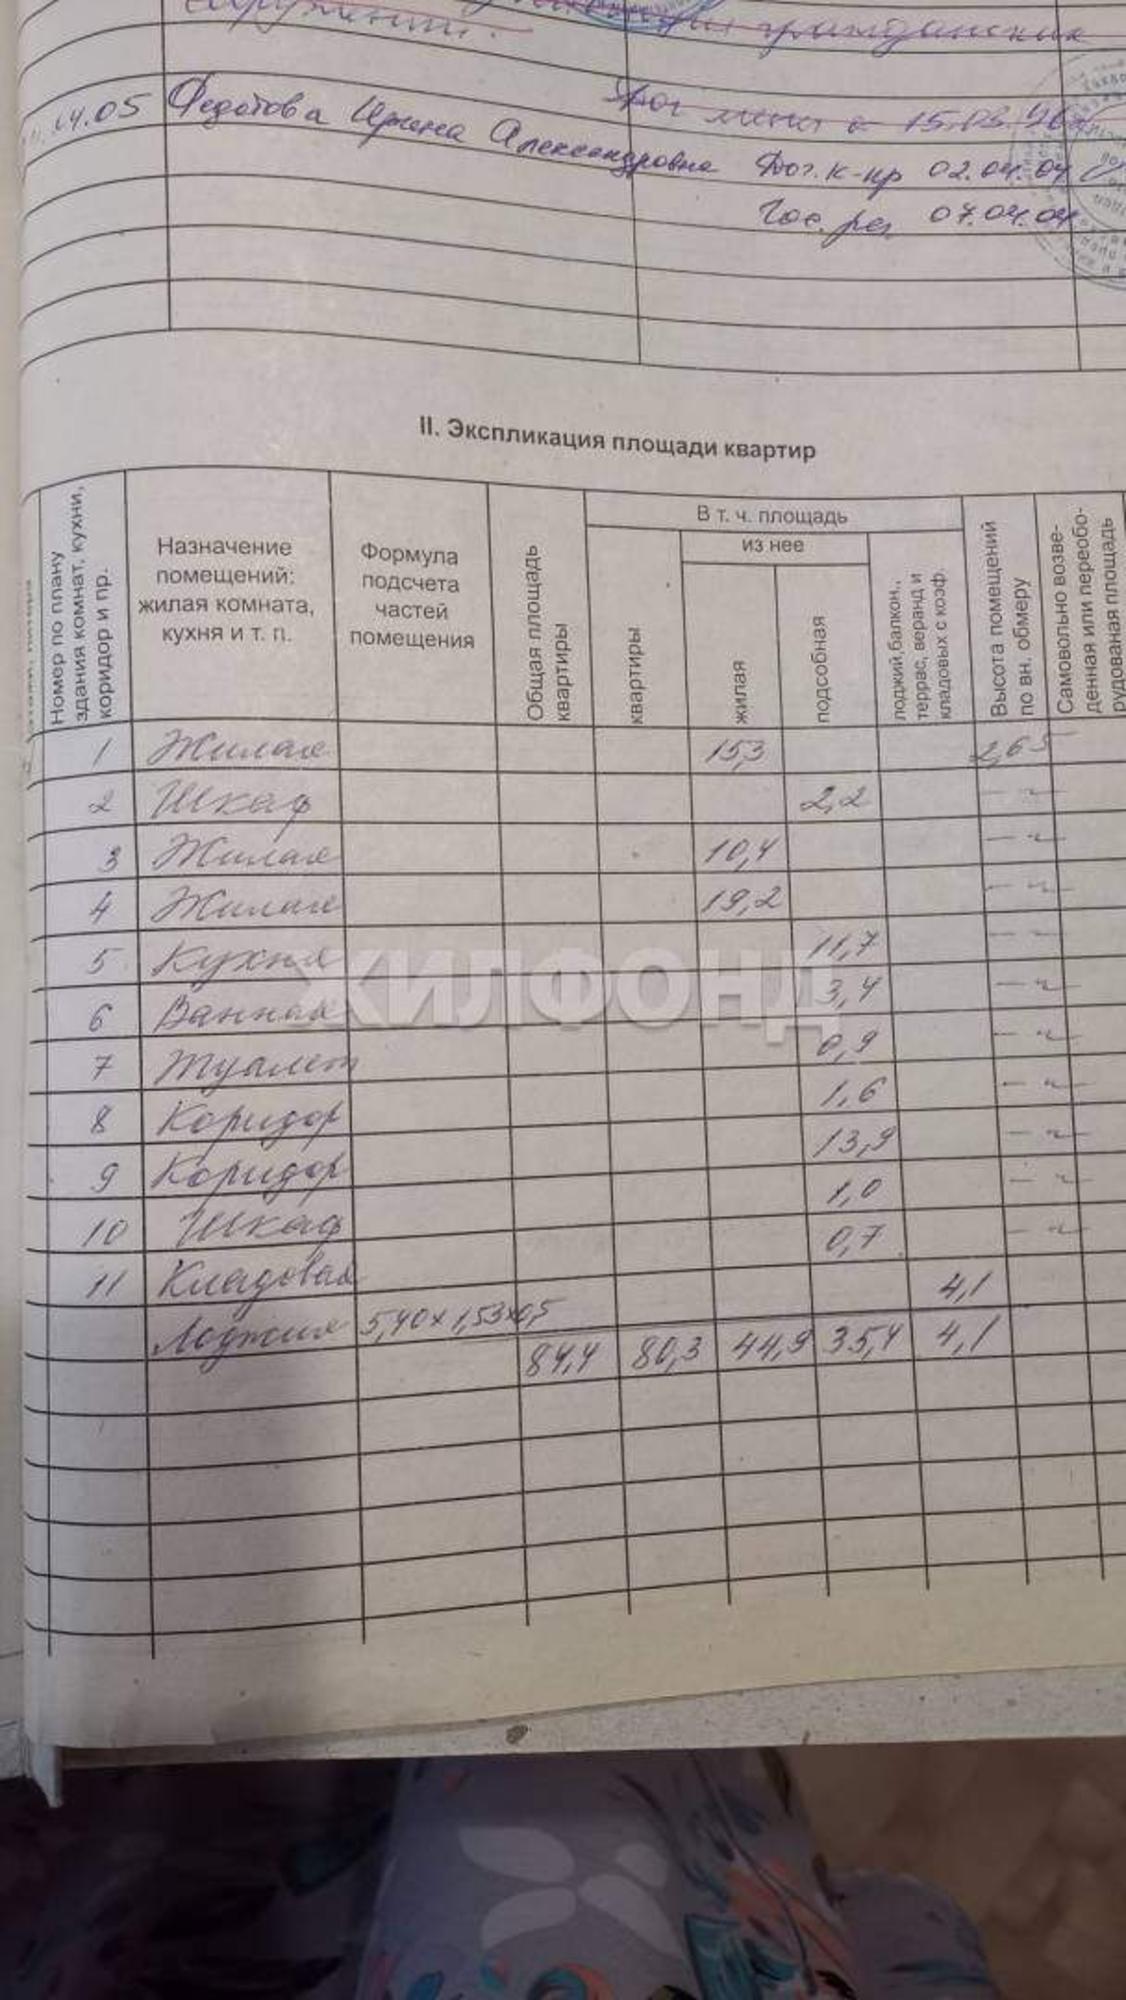 гражданских
14.05 Федотова Ирина Александровна
Дог мены с 15.03.96г
Дог. к-пр 02.04.04
Гос. рег. 07.04.04
II. Экспликация площади квартир
Номер по плану здания комнат, кухни, коридор и пр.
Назначение помещений: жилая комната, кухня и т. п.
Формула подсчета частей помещения
Общая площадь квартиры
В т. ч. площадь
квартиры
из нее
жилая
подсобная
лоджий, балкон., террас, веранд и кладовых с коэф.
Высота помещений по вн. обмеру
Самовольно возведенная или переоборудованая площадь
1 Жилая 15,3 2,65
2 Шкаф 2,2 — " —
3 Жилая 10,4 — " —
4 Жилая 19,2 — " —
5 Кухня 11,7 — " —
6 Ванная 3,4 — " —
7 Туалет 0,9 — " —
8 Коридор 1,6 — " —
9 Коридор 13,9 — " —
10 Шкаф 1,0 — " —
11 Кладовая 0,7 — " —
Лоджия 5,40 х 1,53 х 0,5 4,1
84,4 80,3 44,9 35,4 4,1
ЖИЛФОНД